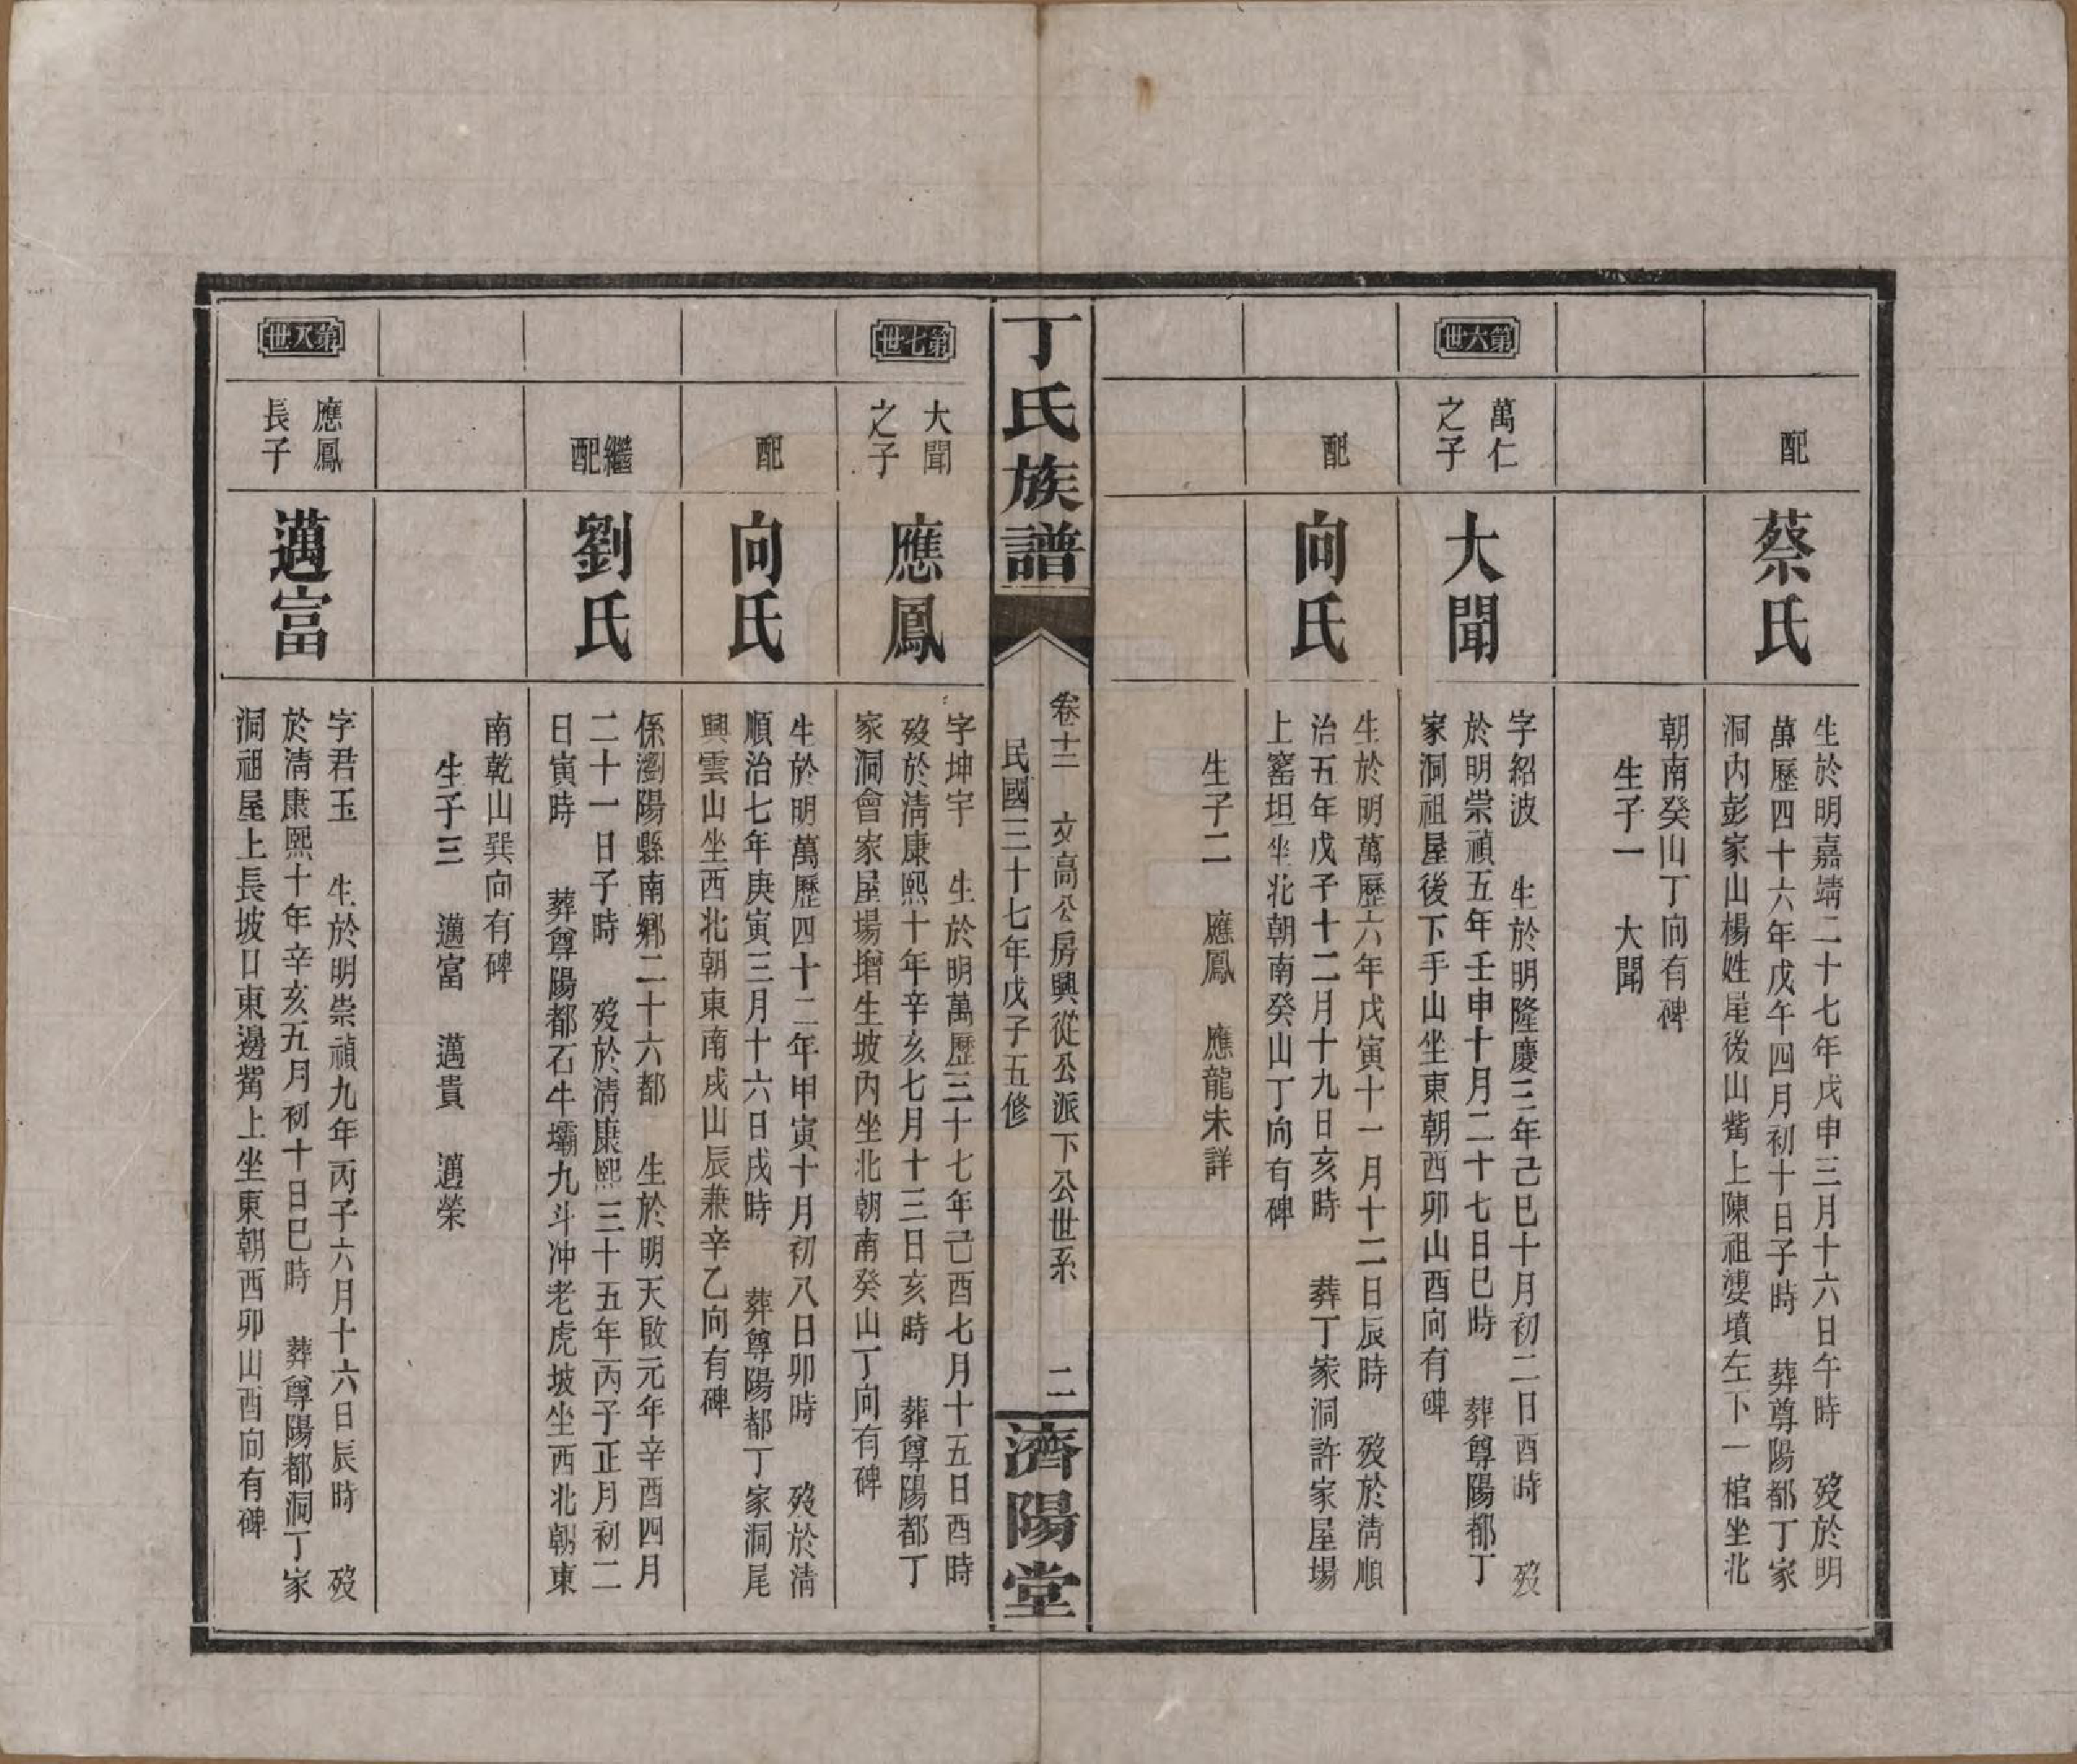 配
蔡氏
生於明嘉靖二十七年戊申三月十六日午時　歿於明
萬歷四十六年戊午四月初十日子時　葬尊陽都丁家
洞內彭家山楊姓屋後山嘴上陳祖婆墳左下一棺坐北
朝南癸山丁向有碑
生子一　大聞
第六世
萬仁
之子
大聞
字紹波　生於明隆慶三年己巳十月初二日酉時　歿
於明崇禎五年壬申十月二十七日巳時　葬尊陽都丁
家洞祖屋後下手山坐東朝西卯山酉向有碑
配
向氏
生於明萬歷六年戊寅十一月十二日辰時　歿於清順
治五年戊子十二月十九日亥時　葬丁家洞許家屋場
上窰坦坐北朝南癸山丁向有碑
生子二　應鳳　應龍未詳
丁氏族譜
卷十二　文高公房興從公派下公世系　二
民國三十七年戊子五修
濟陽堂
第七世
大聞
之子
應鳳
字坤宇　生於明萬歷三十七年己酉七月十五日酉時
歿於清康熙十年辛亥七月十三日亥時　葬尊陽都丁
家洞會家屋場增生坡內坐北朝南癸山丁向有碑
配
向氏
生於明萬歷四十二年甲寅十月初八日卯時　歿於清
順治七年庚寅三月十六日戌時　葬尊陽都丁家洞尾
興雲山坐西北朝東南戌山辰兼辛乙向有碑
繼
配
劉氏
係瀏陽縣南鄉二十六都　生於明天啟元年辛酉四月
二十一日子時　歿於清康熙三十五年丙子正月初二
日寅時　葬尊陽都石牛壩九斗冲老虎坡坐西北朝東
南乾山巽向有碑
生子三　邁富　邁貴　邁榮
第八世
應鳳
長子
邁富
字君玉　生於明崇禎九年丙子六月十六日辰時　歿
於清康熙十年辛亥五月初十日巳時　葬尊陽都洞丁家
洞祖屋上長坡口東邊嘴上坐東朝西卯山酉向有碑